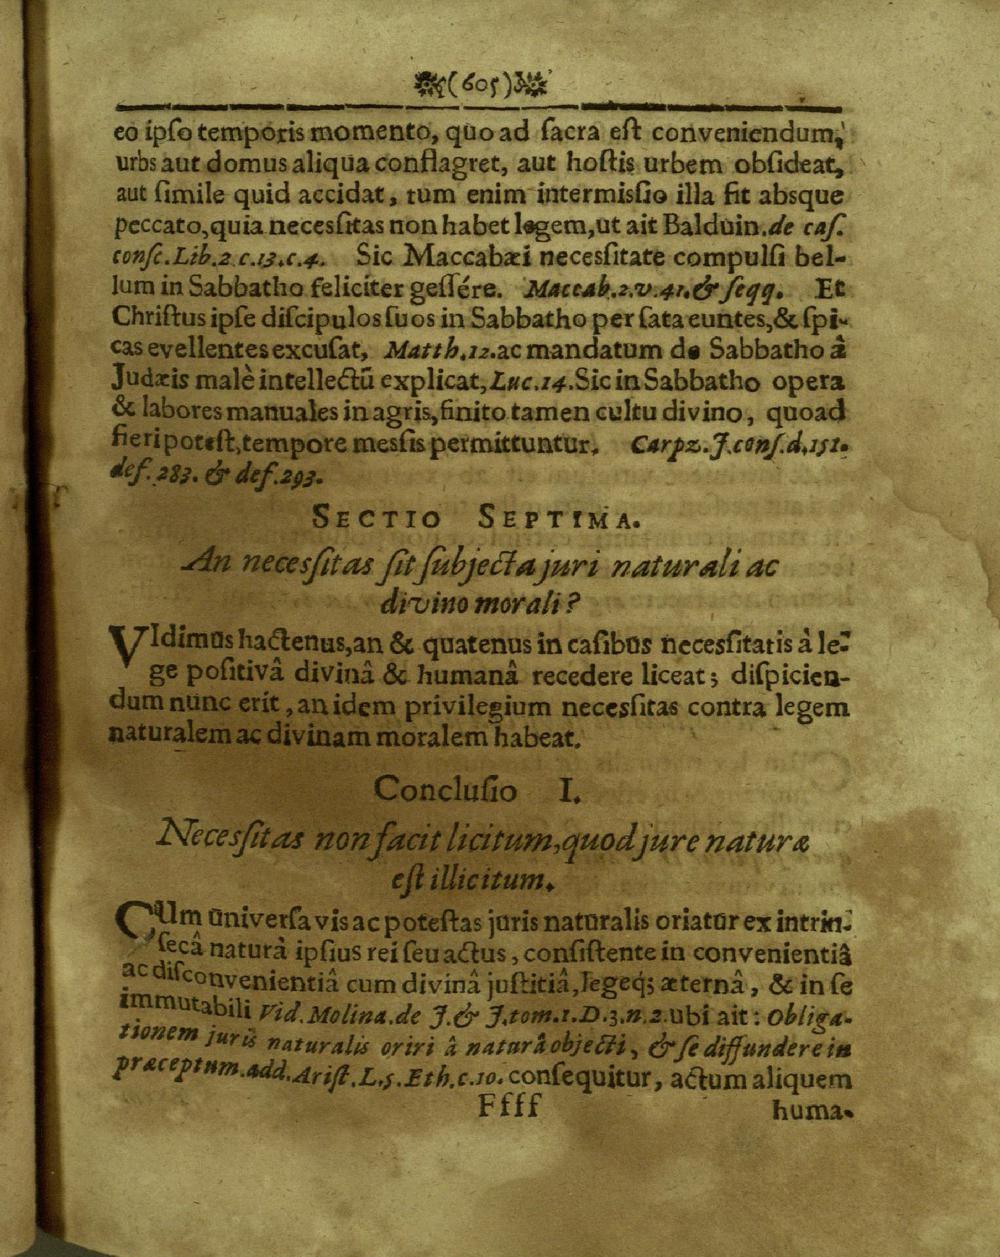 (605)
eo ipſo temporis momento, quo ad ſacra eſt conveniendum,
urbs aut domus aliqua conflagret, aut hoſtis urbem obſideat,
aut ſimile quid accidat, tum enim intermisſio illa fit absque
peccato, quia necesſitas non habet legem, ut ait Balduin. de caſ.
conſc. Lib. 2. c. 13. c. 4. Sic Maccabæi necesſitate compulſi bel-
lum in Sabbatho feliciter geſſére. Maccab. 2. v. 41. & ſeqq. Et
Chriſtus ipſe diſcipulos ſuos in Sabbatho per ſata euntes, & ſpi-
cas evellentes excuſat, Matth. 12. ac mandatum de Sabbatho â
Judæis malè intellectũ explicat, Luc. 14. Sic in Sabbatho opera
& labores manuales in agris, finito tamen cultu divino, quoad
fieri poteſt, tempore mesſis permittuntur. Carpz. J. conſ. d. 151.
def. 283. & def. 293.
SECTIO SEPTIMA.
An necesſitas ſit ſubjecta juri naturali ac
divino morali?
VIdimus hactenus, an & quatenus in caſibus necesſitatis â le-
ge poſitivâ divinâ & humanâ recedere liceat; diſpicien-
dum nunc erit, an idem privilegium necesſitas contra legem
naturalem ac divinam moralem habeat.
Concluſio I.
Necesſitas non facit licitum, quod jure naturæ
eſt illicitum.
CUm univerſa vis ac poteſtas juris naturalis oriatur ex intrin-
ſecâ naturâ ipſius rei ſeu actus, conſiſtente in convenientiâ
ac diſconvenientiâ cum divinâ juſtitiâ, legeq; æternâ, & in ſe
immutabili Vid. Molina. de J. & J. tom. 1. D. 3. n. 2. ubi ait: Obliga-
tionem juris naturalis oriri â naturâ objecti, & ſe diffundere in
præceptum. add. Ariſt. L. 5. Eth. c. 10. conſequitur, actum aliquem
Ffff huma-